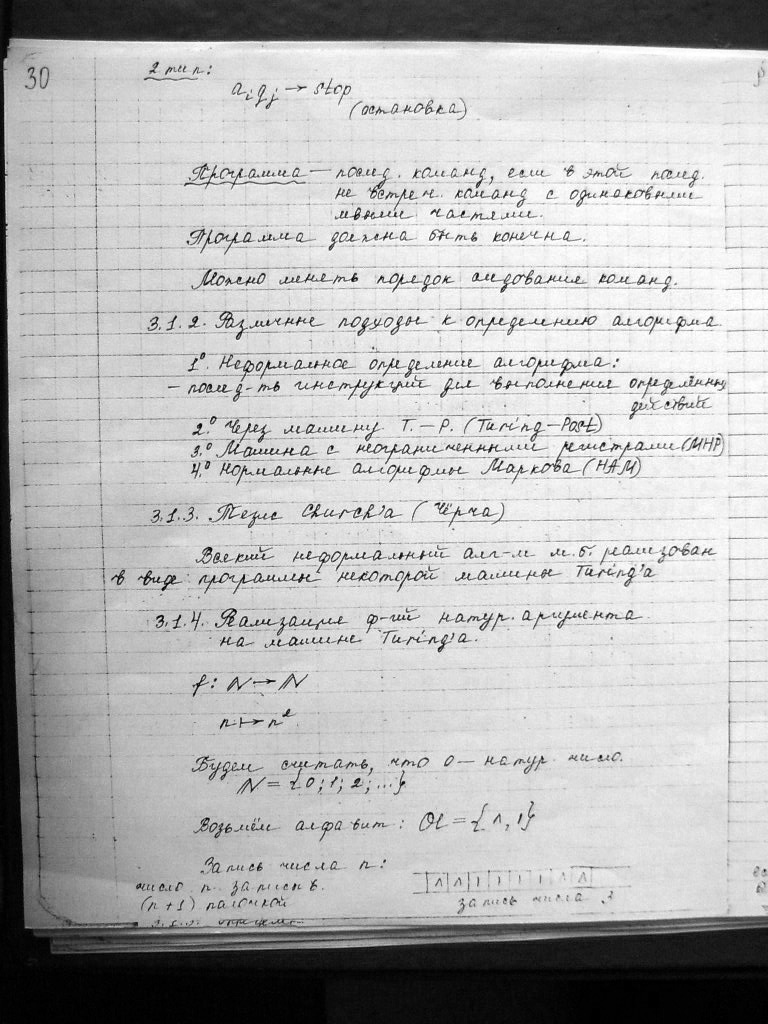 30
2 тип:
a_i q_j → stop
(остановка)
Программа — послед. команд, если в этой послед.
не встреч. команд с одинаковыми
левыми частями.
Программа должна быть конечна.
Можно менять порядок следования команд.
3.1.2. Различные подходы к определению алгорифма.
1°. Неформальное определение алгорифма:
— послед-ть инструкций для выполнения определённых
действий
2.° Через машину Т.—Р. (Turing—Post)
3.° Машина с неограниченными регистрами (МНР)
4.° Нормальные алгорифмы Маркова (НАМ)
3.1.3. Тезис Church'а (Чёрча)
Всякий неформальный алг-м м.б. реализован
в виде программы некоторой машины Turing'а
3.1.4. Реализация ф-ий натур. аргумента
на машине Turing'а.
f: ℕ → ℕ
n ↦ n²
Будем считать, что 0 — натур. число.
ℕ = {0; 1; 2; ...}
Возьмём алфавит: 𝔄 = {Λ, 1}
Запись числа n:
число n запис. в.
(n+1) палочкой
Λ Λ 1 1 1 1 Λ Λ
запись числа 3
3.1.5. определ.